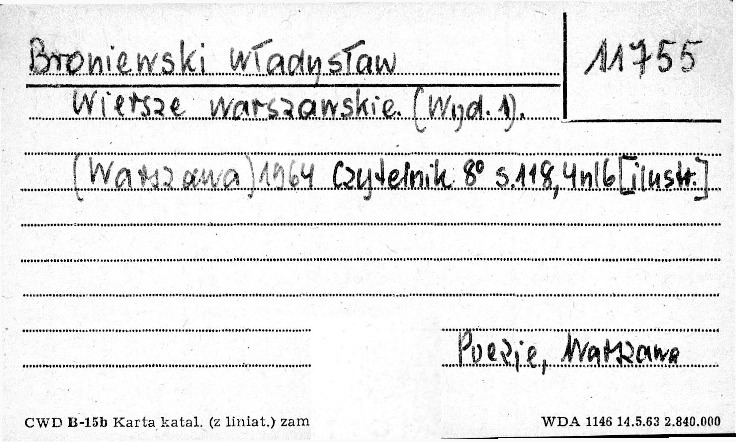 Broniewski Władysław
11755
Wiersze warszawskie. (Wyd. 1).
(Warszawa) 1964 Czytelnik 8° s.118, 4nlb [ilustr.]
Poezje, Warszawa
CWD B-15b Karta katal. (z liniat.) zam
WDA 1146 14.5.63 2.840.000